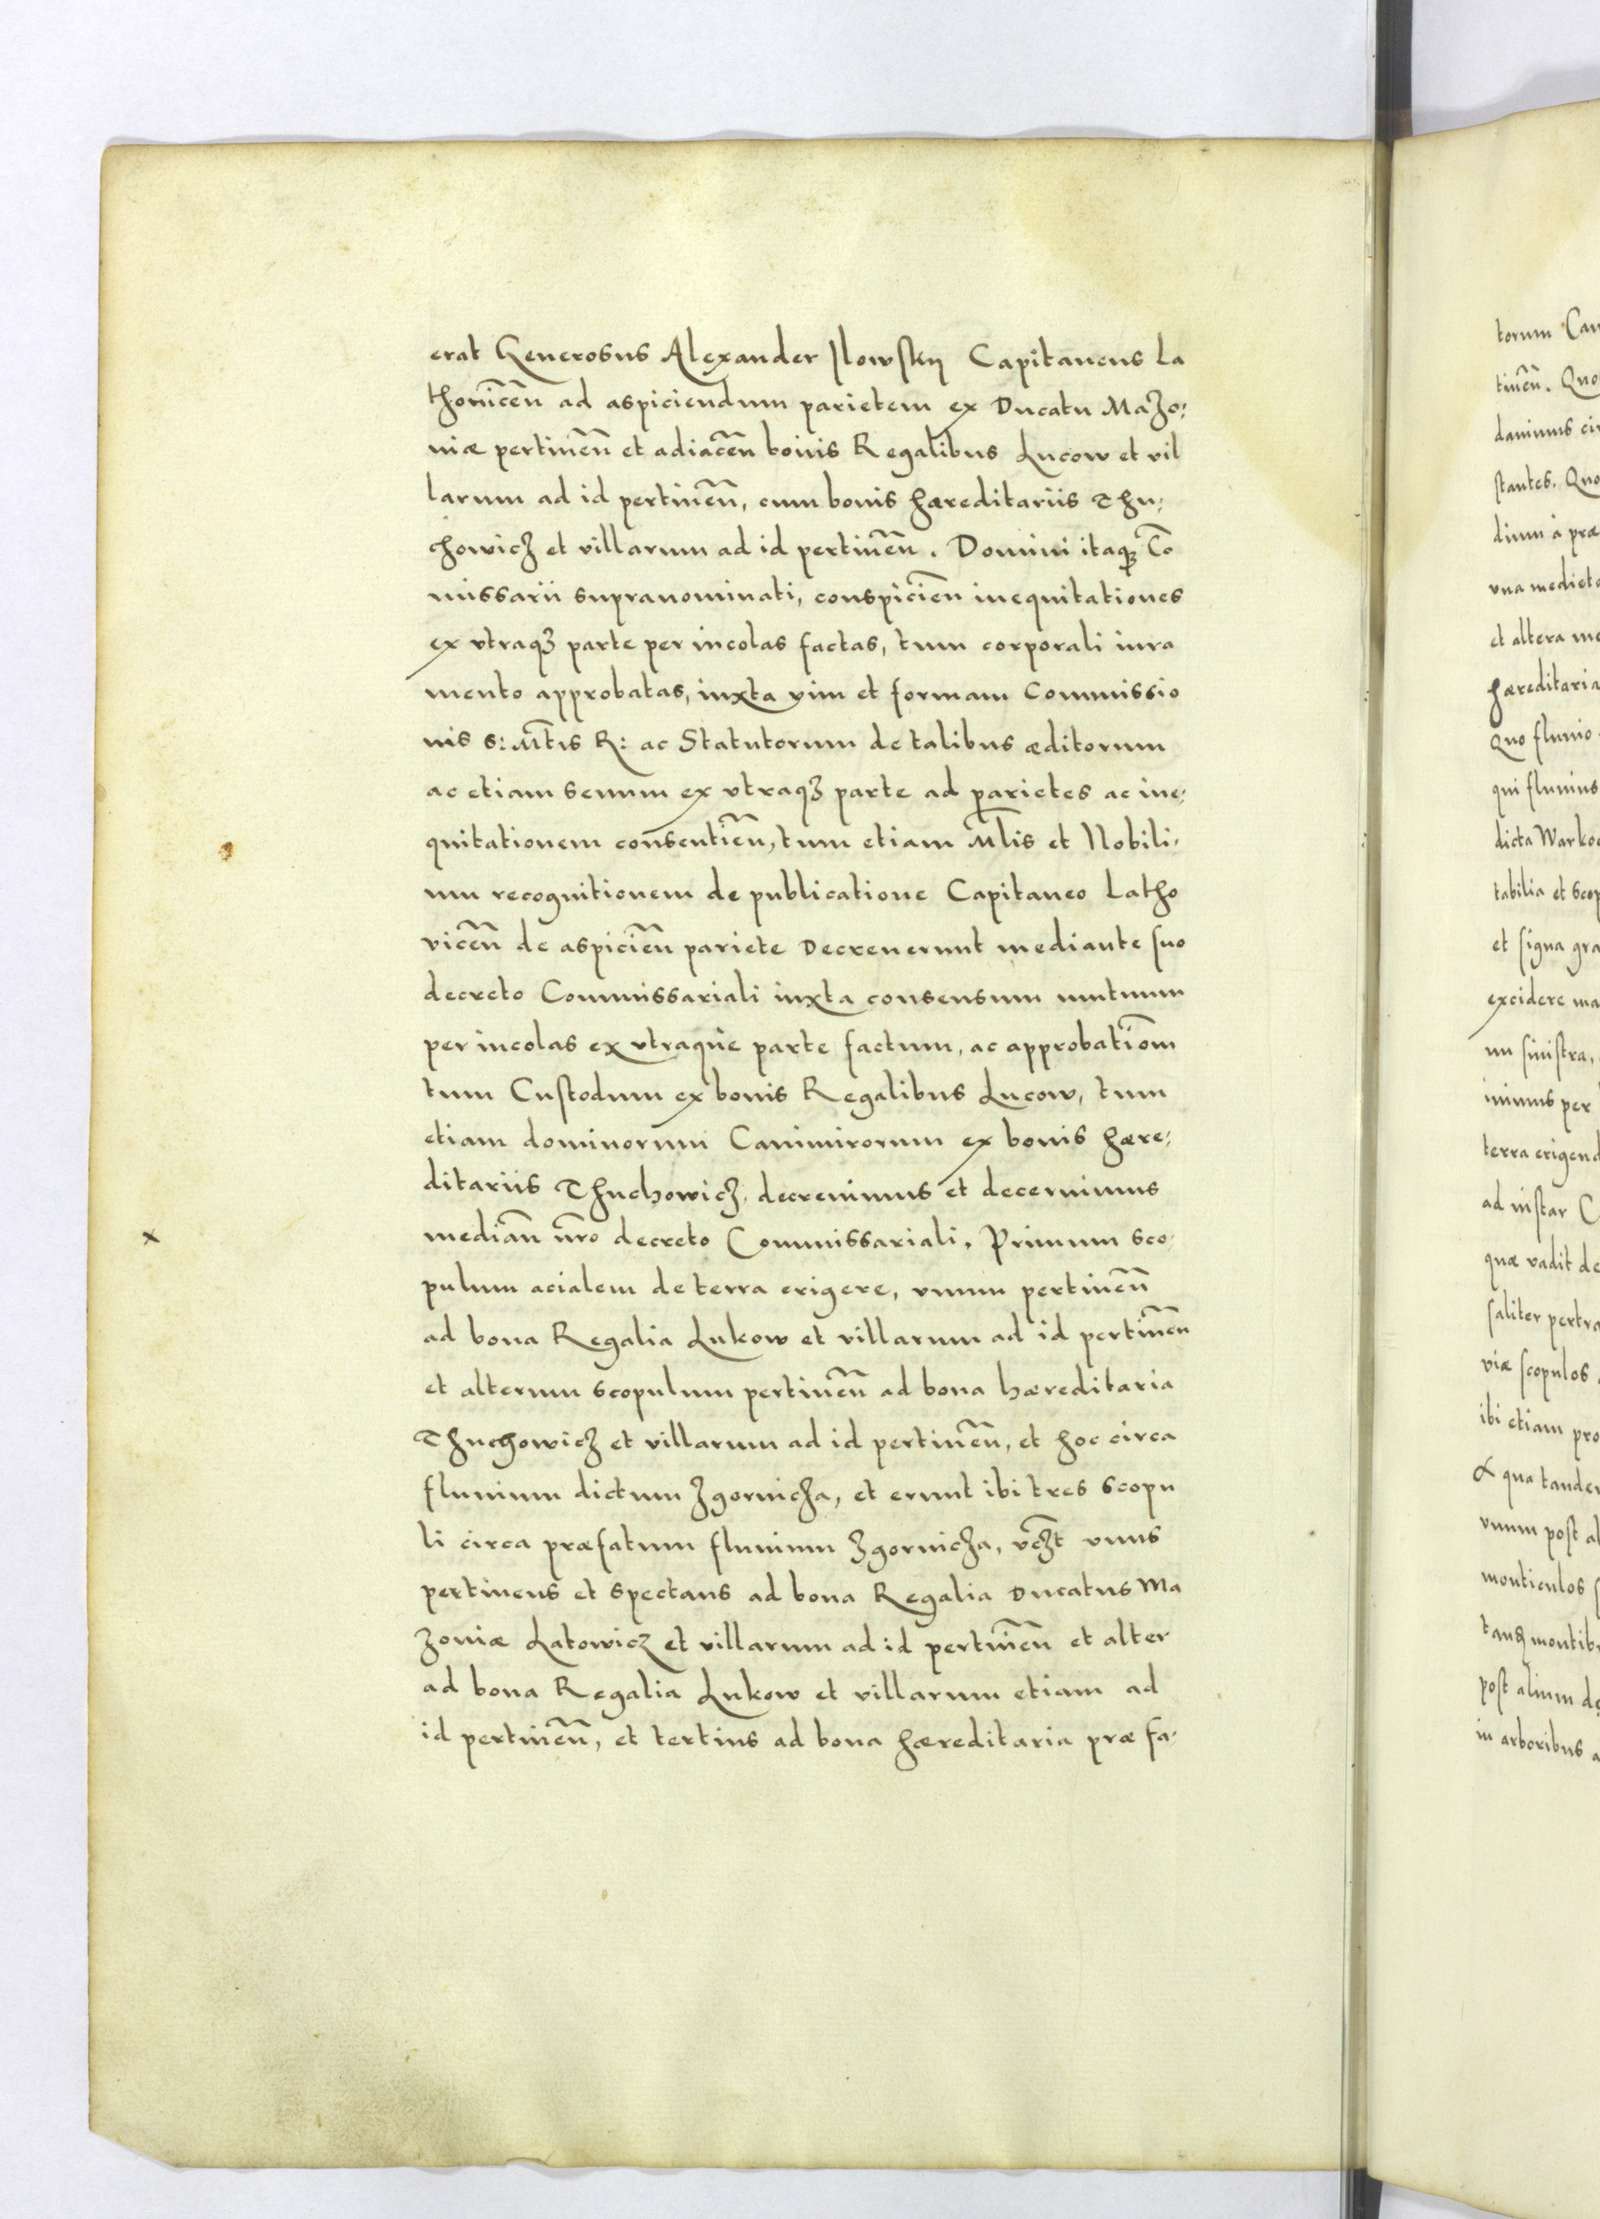 erat Generosus Alexander Ilowskij Capitaneus La
thovicen̄ ad aspiciendum parietem ex Ducatu Mazo:
viæ pertinen̄ et adiacen̄ bonis Regalibus Lucow et vil
larum ad id pertinen̄, cum bonis hæreditariis Thu:
chowicz et villarum ad id pertinen̄. Domini itaqȝ Co̅
missarii supranominati, conspicien̄ inequitationes
ex vtraqȝ parte per incolas factas, tum corporali iura
mento approbatas, iuxta vim et formam Commissio
nis S: M̅tis R: ac Statutorum de talibus æditorum
ac etiam senum ex vtraqȝ parte ad parietes ac ine:
quitationem consentien̄, tum etiam M̅lis et Nobili:
um recognitionem de publicatione Capitaneo Latho
vicen̄ de aspicien̄ pariete Decreuerunt mediante suo
decreto Commissariali iuxta consensum mutuum
per incolas ex vtraque parte factum, ac approbatio̅m
tum Custodum ex bonis Regalibus Lucow, tum
etiam dominorum Canimirorum ex bonis hære:
ditariis Thuchowicz, decreuimus et decernimus
median̄ nr̅o decreto Commissariali. Primum sco:
pulum acialem de terra erigere, vnum pertinen̄
ad bona Regalia Lukow et villarum ad id pertinen̄
et alterum scopulum pertinen̄ ad bona hæreditaria
Thuchowicz et villarum ad id pertinen̄, et hoc circa
fluuium dictum Zgornicza, et erunt ibi tres scopu
li circa præfatum fluuium Zgornicza, vcz̅t vnus
pertinens et spectans ad bona Regalia Ducatus Ma
zoviæ Latowicz et villarum ad id pertinen̄ et alter
ad bona Regalia Lukow et villarum etiam ad
id pertinen̄, et tertius ad bona hæreditaria præfa:
x
torum
tinen̄. Quo
stantes. Quo
et altera
hæreditaria
quo fluuio
qui fluuius
dicta
tabilia et
et signa
excidere
nu sinistra,
per
terra
ad instar
quæ vadit de
saliter
viæ scopulos
ibi etiam
qua
vnum post
monticulos
post alium
in arboribus